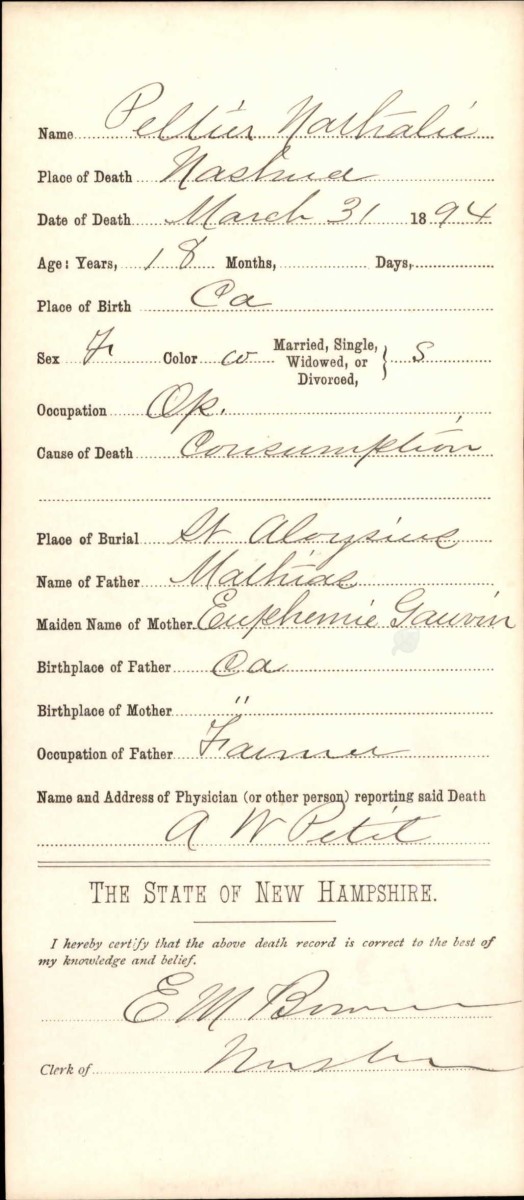 Name Peltier Nathalie
Place of Death Nashua
Date of Death March 31 1894
Age: Years, 18 Months, Days,
Place of Birth Ca
Sex F Color w Married, Single, Widowed, or Divorced, } S
Occupation Op.
Cause of Death Consumption
Place of Burial St Aloysius
Name of Father Mathias
Maiden Name of Mother Euphemie Gauvin
Birthplace of Father Ca
Birthplace of Mother "
Occupation of Father Farmer
Name and Address of Physician (or other person) reporting said Death
A W Petit
THE STATE OF NEW HAMPSHIRE.
I hereby certify that the above death record is correct to the best of
my knowledge and belief.
E M Bowman
Clerk of Nashua